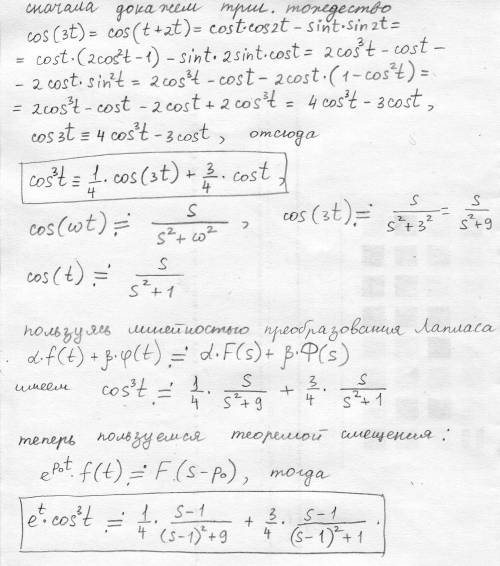 сначала докажем триг. тождество
cos(3t) = cos(t+2t) = cost·cos2t − sint·sin2t =
= cost·(2cos²t−1) − sint·2sint·cost = 2cos³t − cost −
− 2cost·sin²t = 2cos³t − cost − 2cost·(1−cos²t) =
= 2cos³t − cost − 2cost + 2cos³t = 4cos³t − 3cost,
cos3t ≡ 4cos³t − 3cost, отсюда
cos³t ≡ 1/4·cos(3t) + 3/4·cost,
cos(ωt) ≓ s/(s²+ω²), cos(3t) ≓ s/(s²+3²) = s/(s²+9)
cos(t) ≓ s/(s²+1)
пользуясь линейностью преобразования Лапласа
α·f(t) + β·φ(t) ≓ α·F(s) + β·Φ(s)
имеем cos³t ≓ 1/4·s/(s²+9) + 3/4·s/(s²+1)
теперь пользуемся теоремой смещения:
e^(p₀t)·f(t) ≓ F(s−p₀), тогда
e^t·cos³t ≓ 1/4·(s−1)/((s−1)²+9) + 3/4·(s−1)/((s−1)²+1).